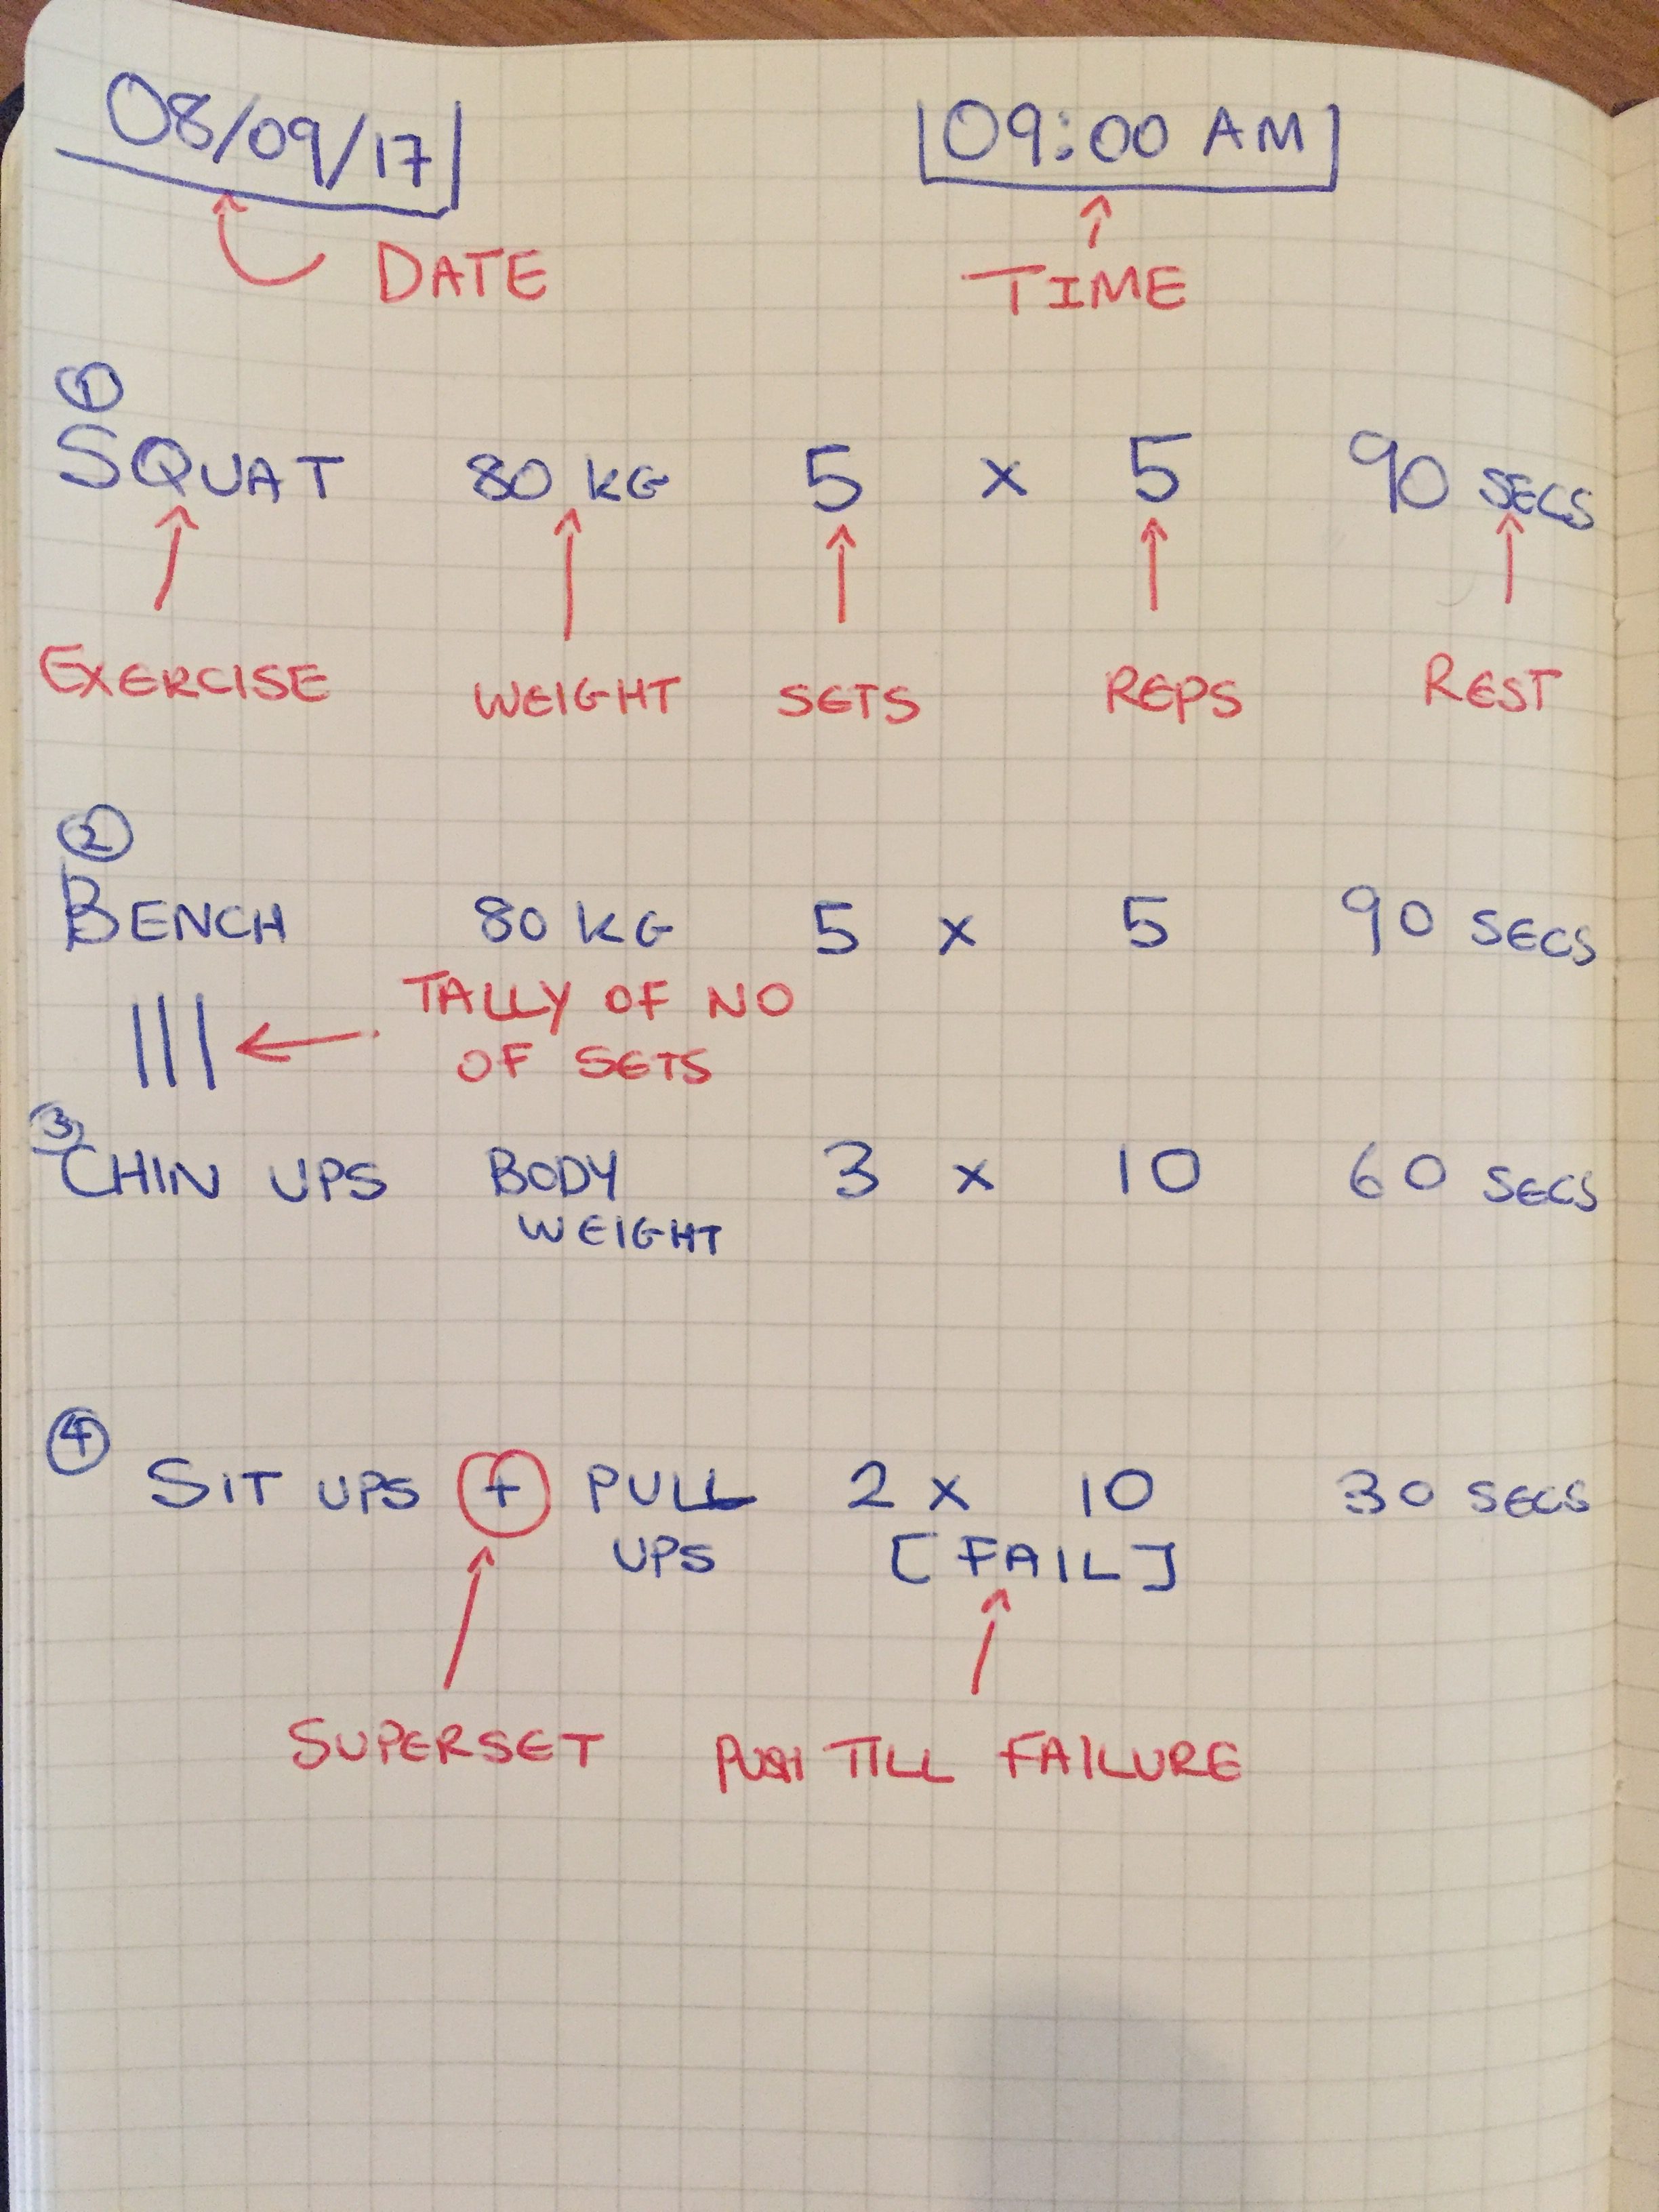 08/09/17 09:00 AM
DATE TIME
1
SQUAT 80 KG 5 x 5 90 SECS
EXERCISE WEIGHT SETS REPS REST
2
BENCH 80 KG 5 x 5 90 SECS
TALLY OF NO
OF SETS
3
CHIN UPS BODY 3 x 10 60 SECS
WEIGHT
4
SIT UPS + PULL 2 x 10 30 SECS
UPS [FAIL]
SUPERSET PUSH TILL FAILURE